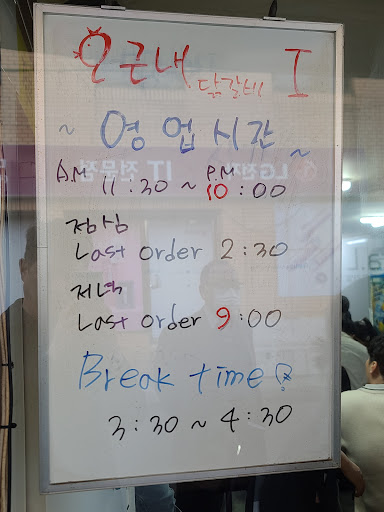 오근내 닭갈비 I
~ 영업시간 ~
A.M 11:30 ~ P.M 10:00
점심
Last order 2:30
저녁
Last order 9:00
Break time
3:30 ~ 4:30
IT 전문점
LG전자